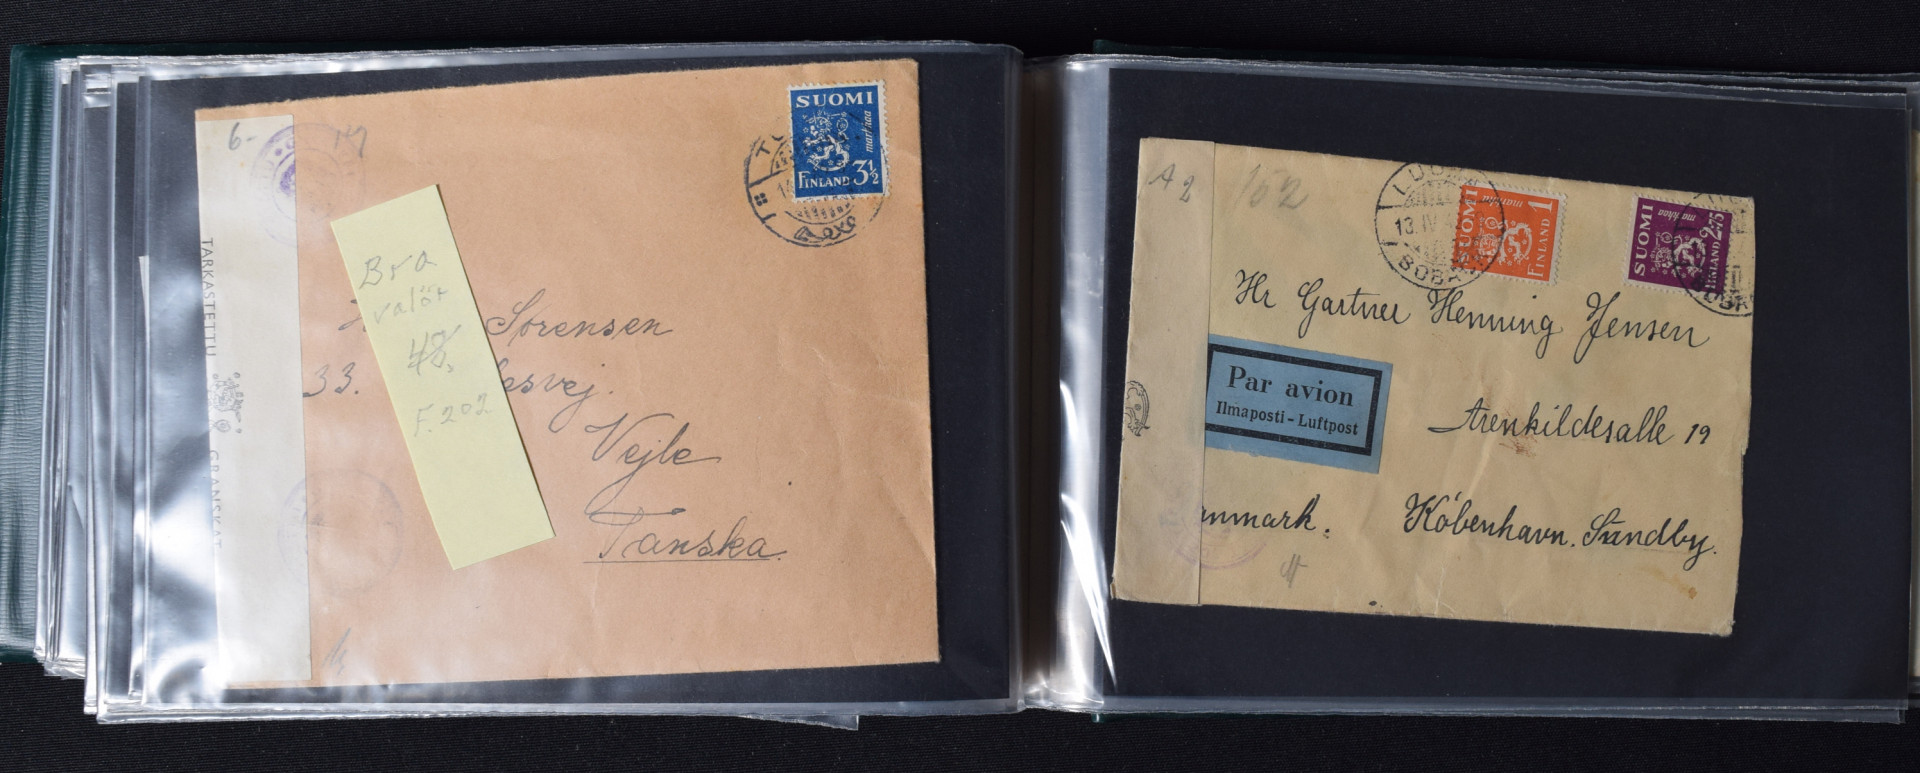 6-
TARKASTETTU
GRANSKAT
SUOMI
markkaa
FINLAND 3½
Bra
valör
48.
F. 202
Sorensen
33.
Vejle
Tanska.
A 2
162
13. IV
SUOMI
markka
FINLAND 1
SUOMI
markkaa
FINLAND 2.75
Hr Gartner Henning Jensen
Par avion
Ilmaposti - Luftpost
Arenkildesalle 19
København. Sundby.
nmark.